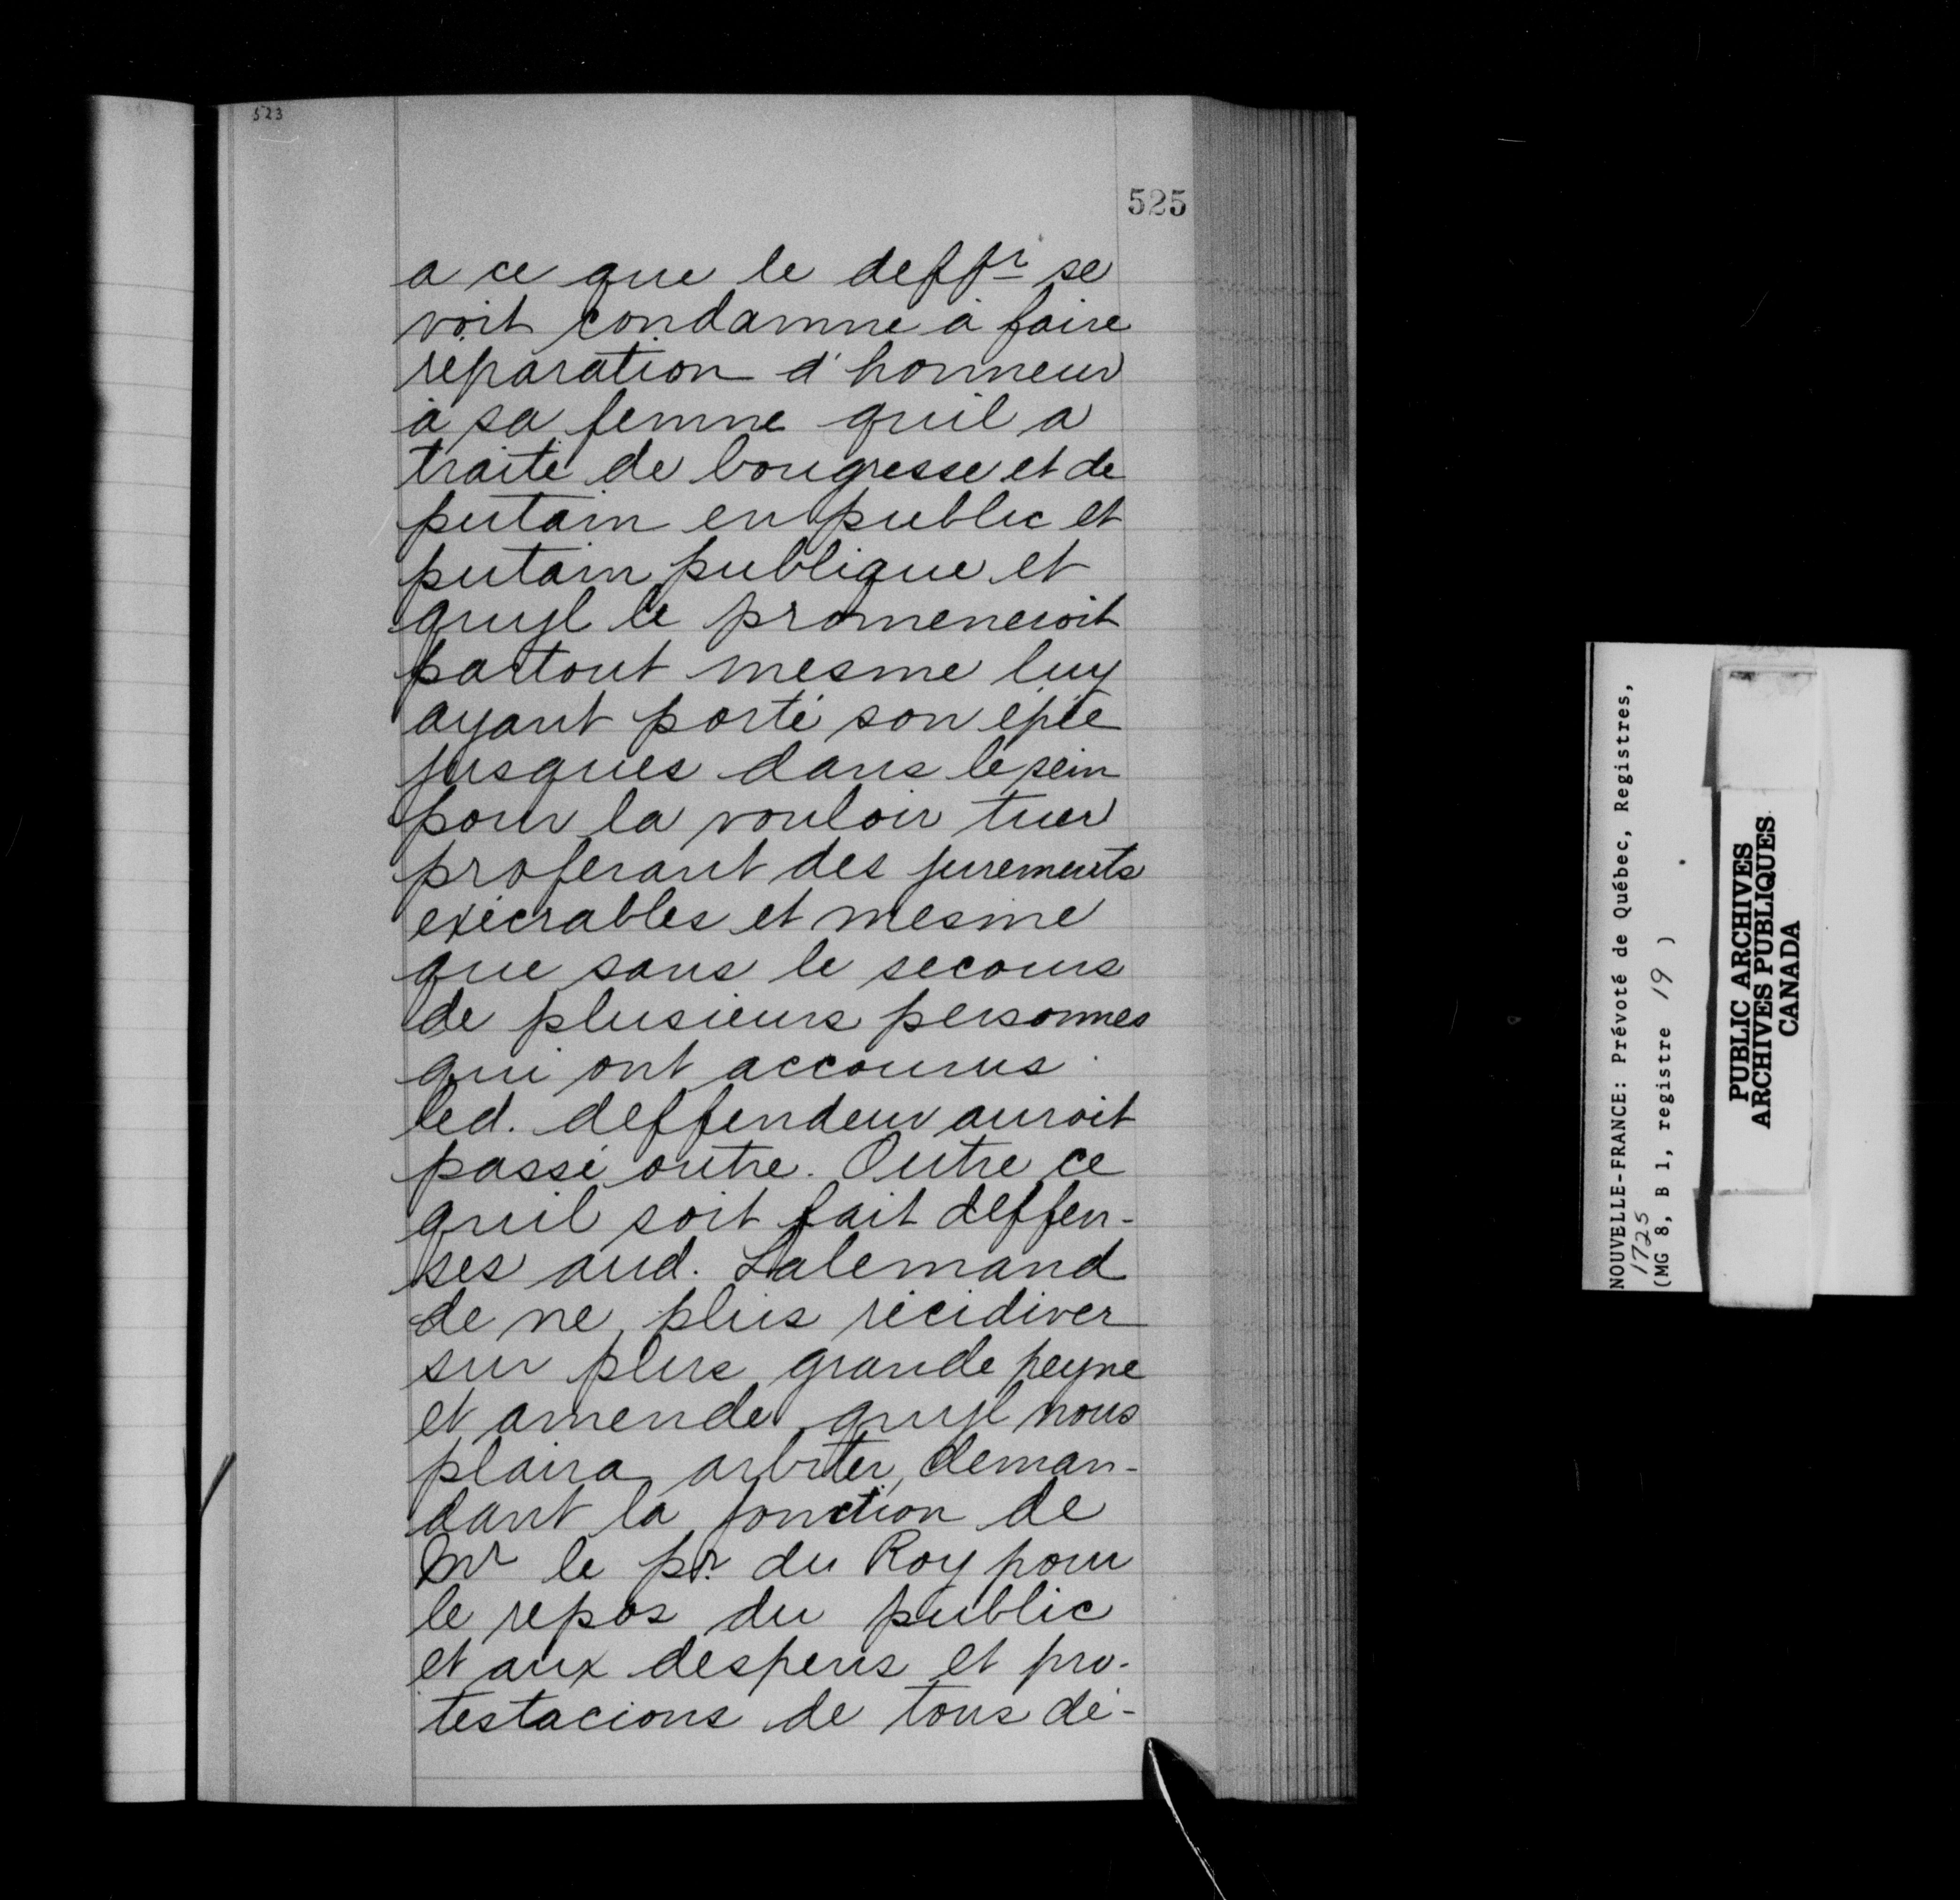 523
525
a ce que le deffr se
voit condamne à faire
reparation d'honneur
à sa femme quil a
traité de bougresse et de
putain en public et
putain publique et
quyl le promeneroit
partout mesme luy
ayant porté son épée
jusques dans le sein
pour la vouloir tuer
proferant des jurements
exécrables et mesme
que sans le secours
de plusieurs personnes
qui ont accourus
led. deffendeur auroit
passé outre. Outre ce
quil soit fait deffen-
ses aud. Lalemand
de ne plus récidiver
sur plus grande peyne
et amende quyl nous
plaira arbiter, deman-
dant la jonction de
Mr le pr. du Roy pour
le repos du public
et aux despens et pro-
testacions de tous dé-
NOUVELLE-FRANCE: Prévoté de Québec, Registres,
1725
(MG 8, B 1, registre 19 )
PUBLIC ARCHIVES
ARCHIVES PUBLIQUES
CANADA